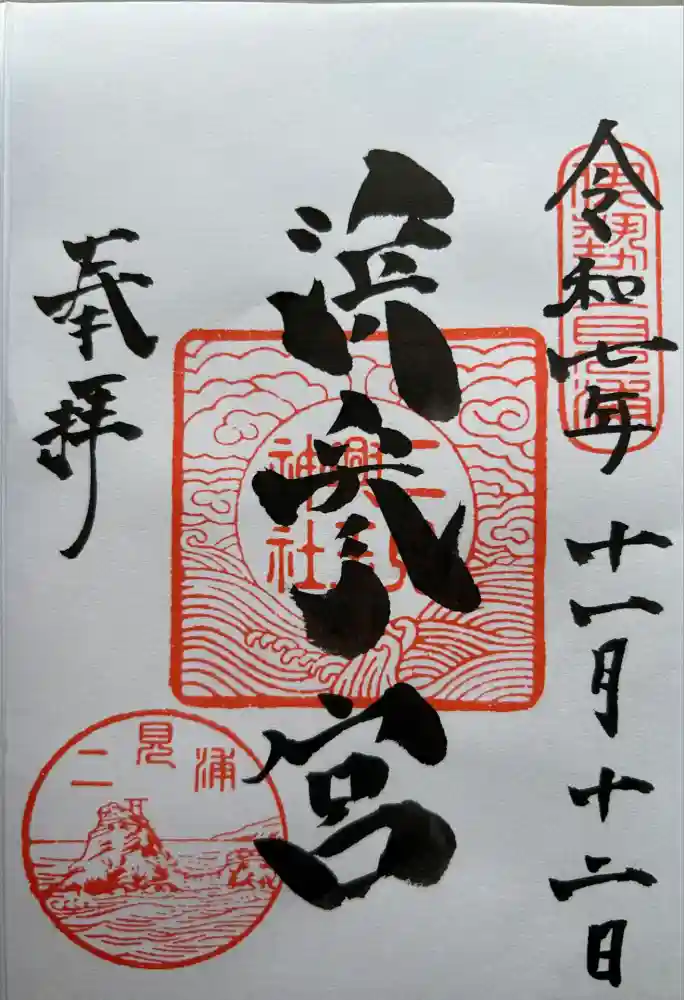 令和七年 十一月十二日
伊勢二見浦
浜参宮
二見
興玉
神社
奉拝
二見浦